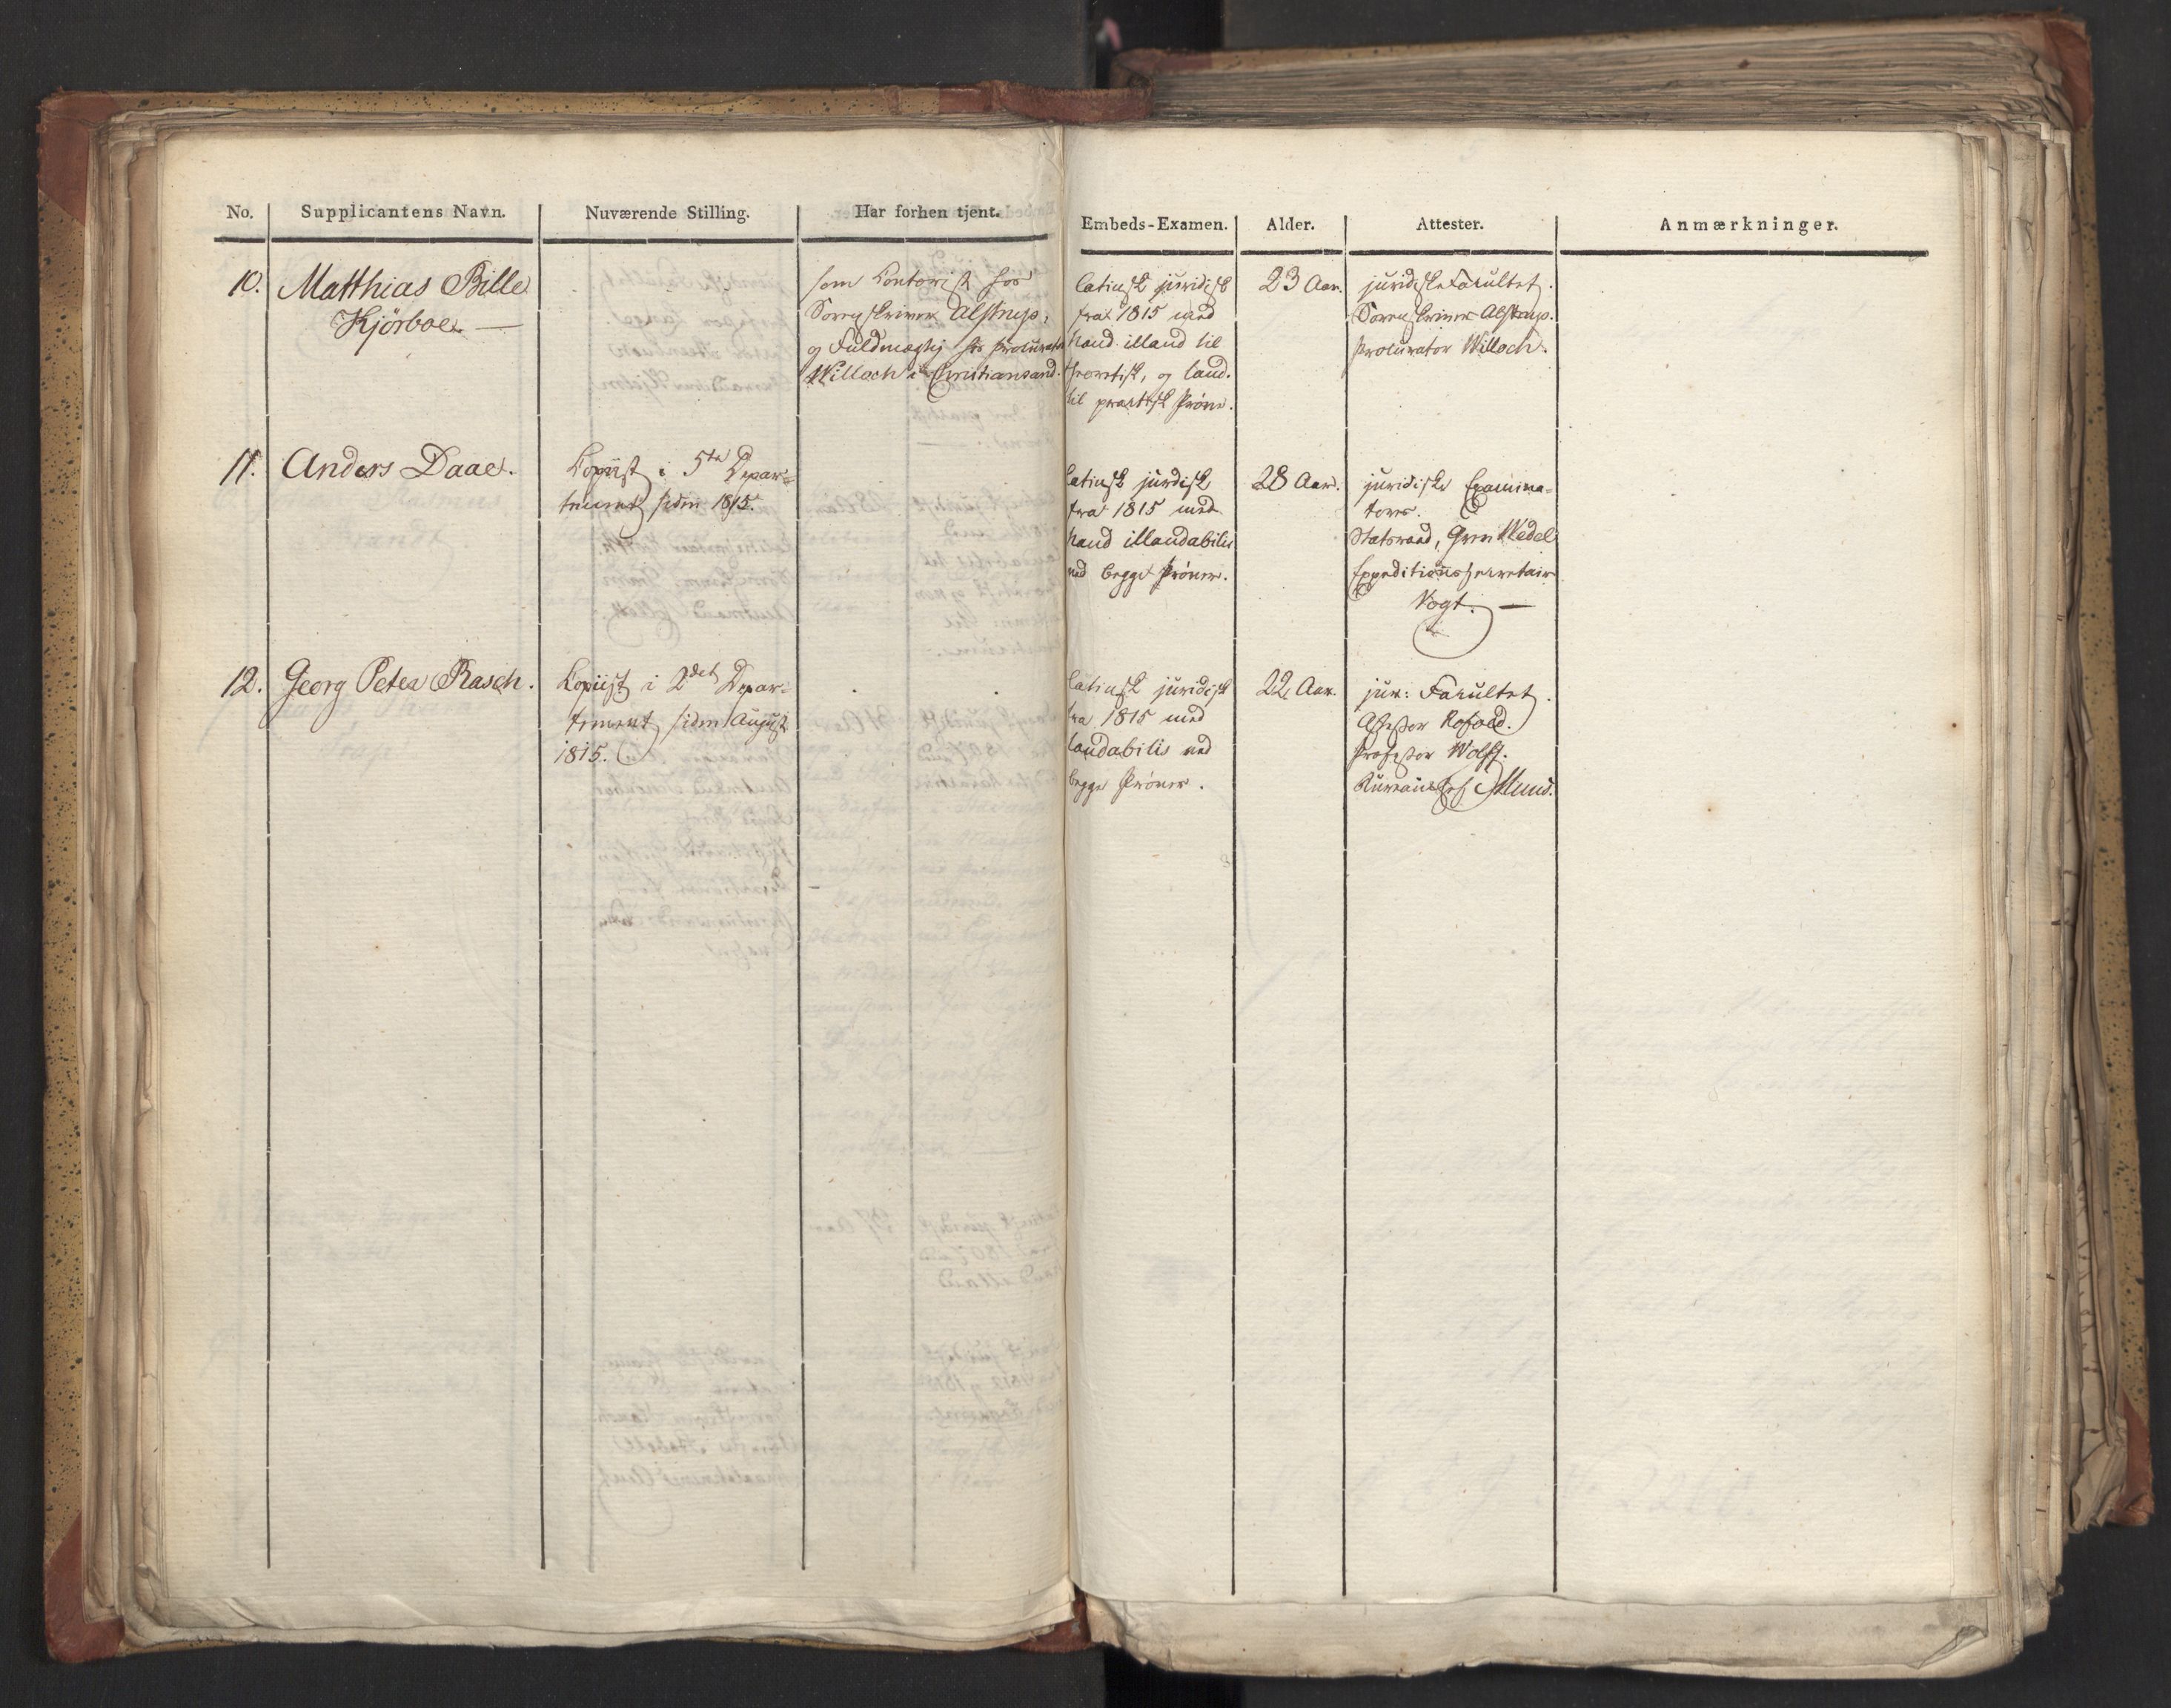 No. Supplicantens Navn. Nuværende Stilling. Har forhen tjent. Embeds-Examen. Alder. Attester. Anmærkninger.
10. Matthias Bille
Kjörboe. —
som Contorist hos
Sorenskriver Alstrup,
og Fuldmægtig hos Procurator
Willoch i Christiansand.
latinsk juridisk
fra 1815 med
haud illaud til
theoretisk, og laud.
til practisk Prøve.
23 Aar.
juridiske Facultet.
Sorenskriver Alstrup.
Procurator Willoch.
11. Anders Daae.
Copiist i 5te Depar=
tement siden 1815.
latinsk jurdisk
fra 1815 med
haud illaudabilis
ved begge Prøver.
28 Aar.
juridiske Examina=
torer.
Statsraad, Grev Wedel
Expeditionssecretair
Vogt. —
12. Georg Peter Rasch.
Copiist i 2det Depar=
tement siden August
1815.
latinsk juridisk
fra 1815 med
laudabilis ved
begge Prøver.
22 Aar.
jur: Facultet.
Assessor Refoed.
Professor Wolff.
Bureauchef Mund.